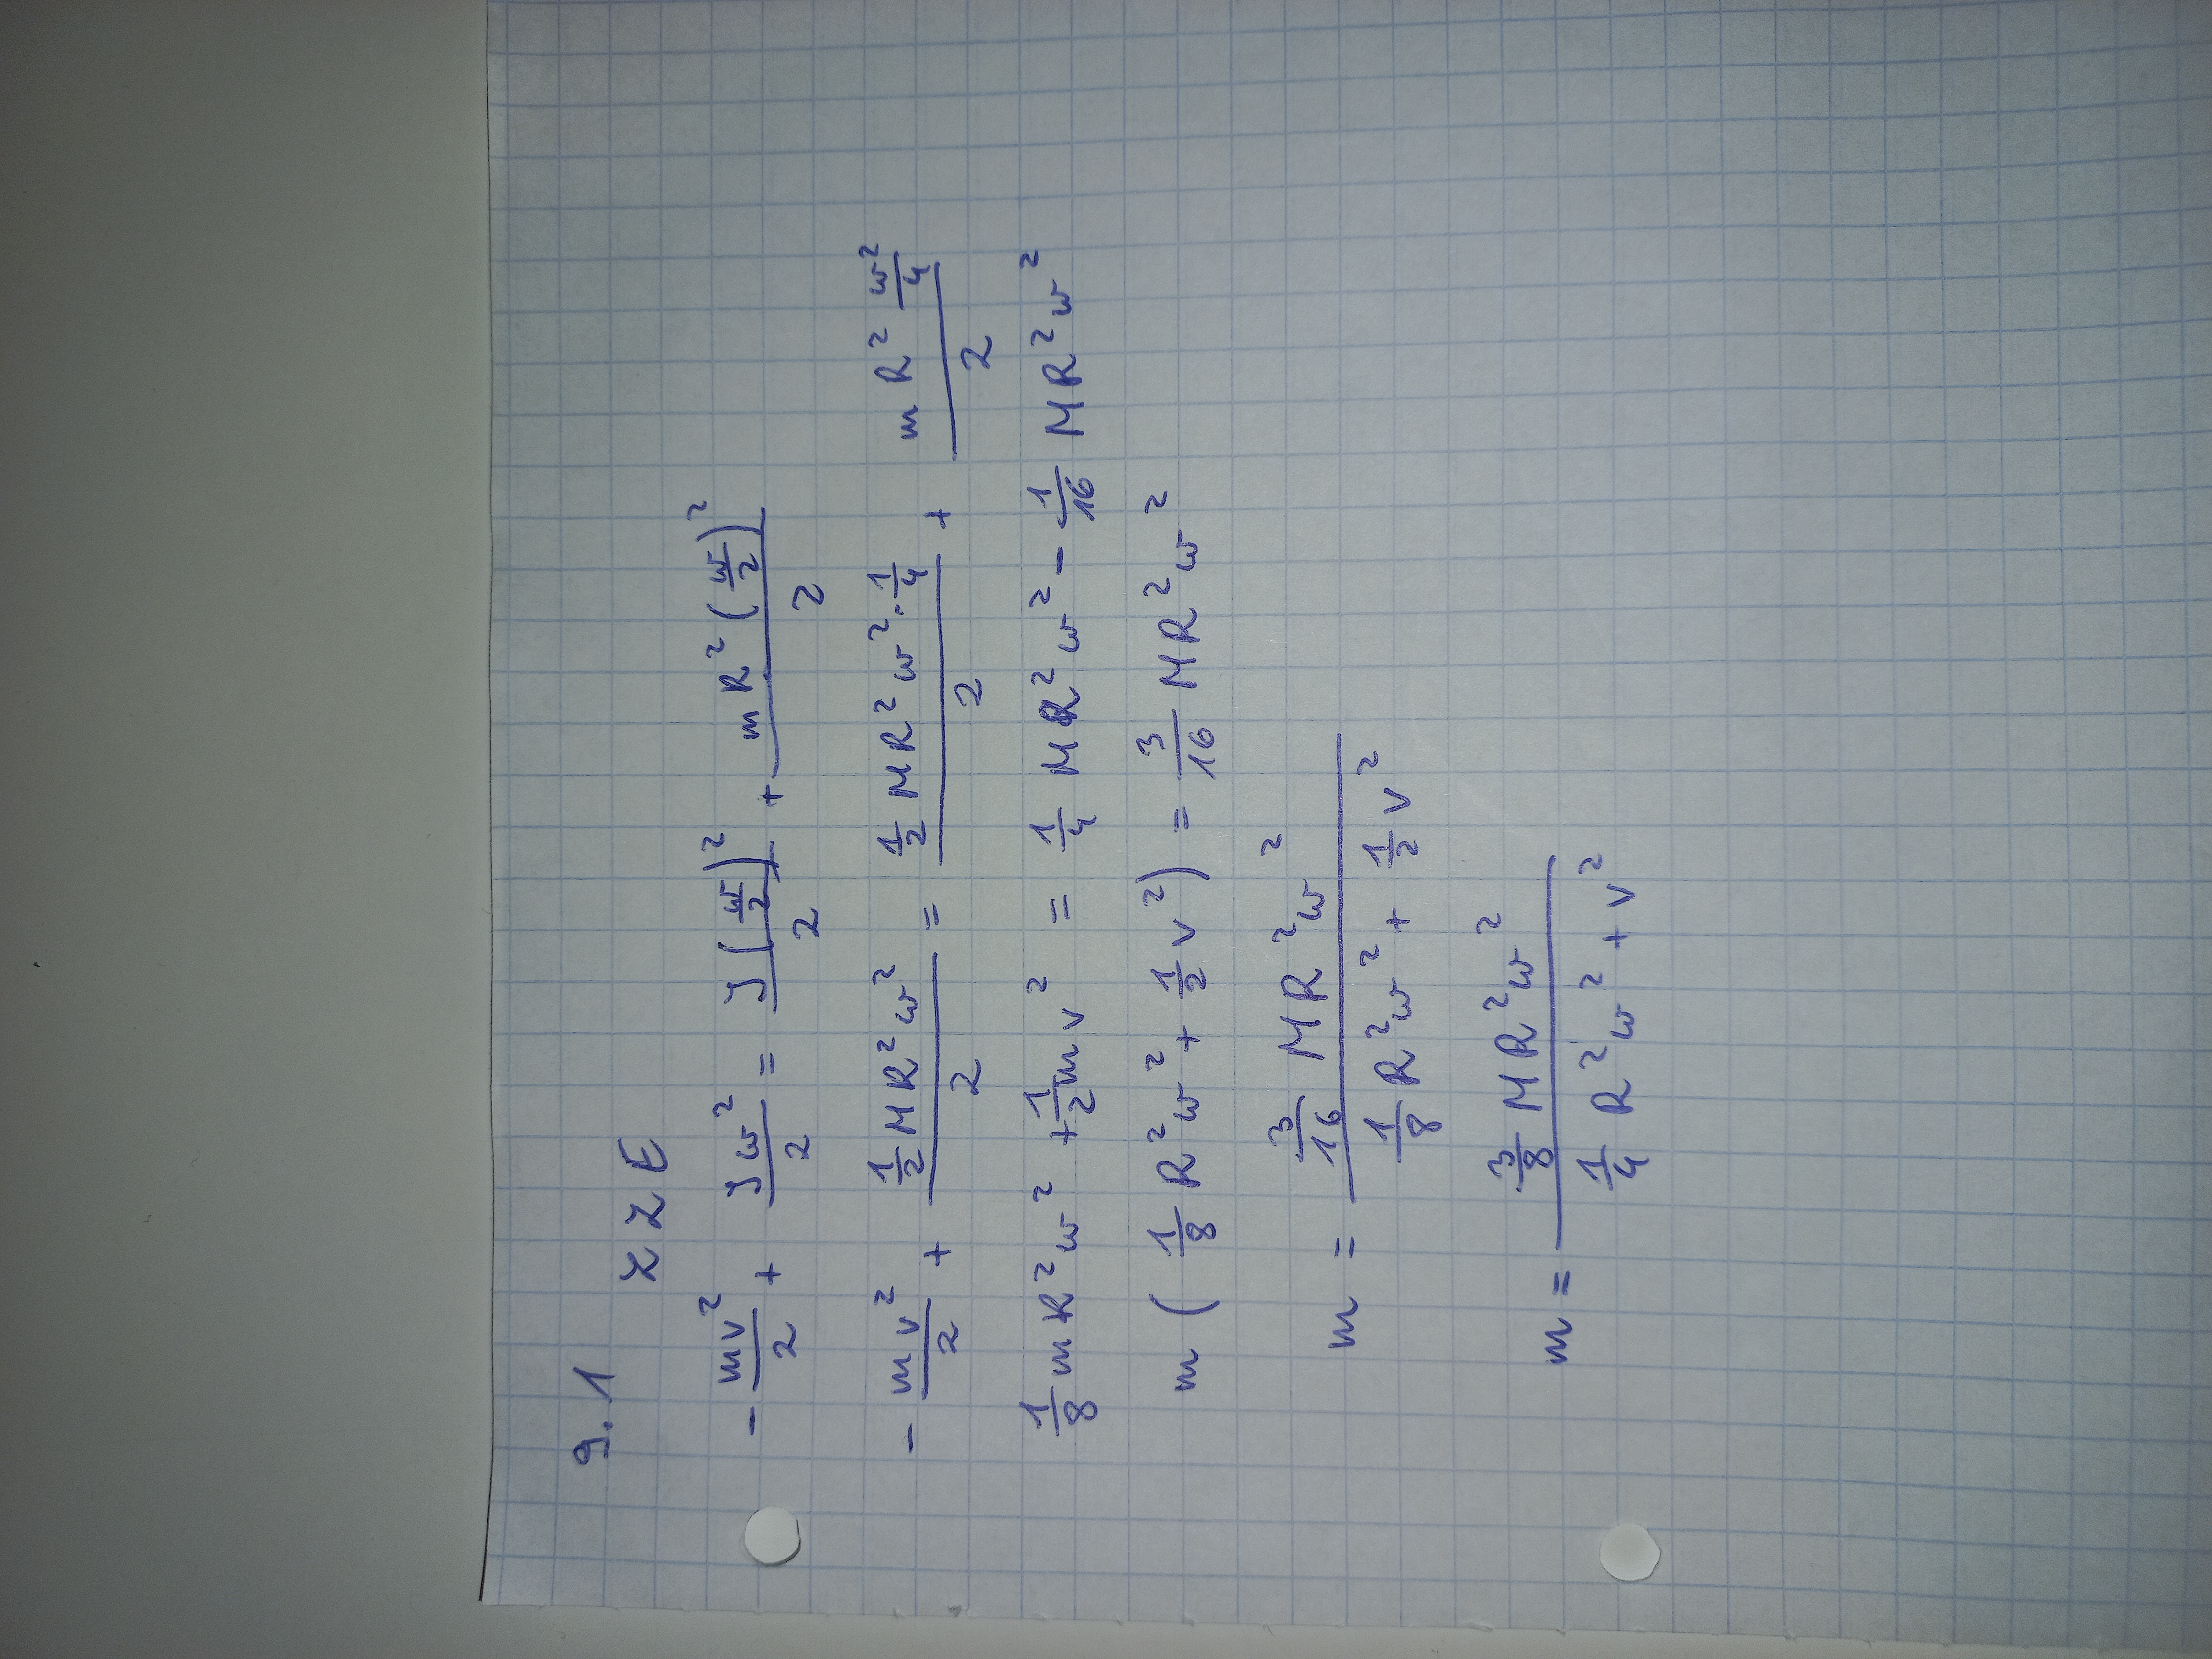 9.1
ZZE
- mv²/2 + Jω²/2 = J(ω/2)²/2 + mR²(ω/2)²/2
- mv²/2 + ½MR²ω²/2 = ½MR²ω²·¼/2 + mR²ω²/4/2
⅛mR²ω² + ½mv² = ¼MR²ω² - 1/16 MR²ω²
m(⅛R²ω² + ½v²) = 3/16 MR²ω²
m = 3/16 MR²ω² / ⅛R²ω² + ½v²
m = ⅜MR²ω² / ¼R²ω² + v²